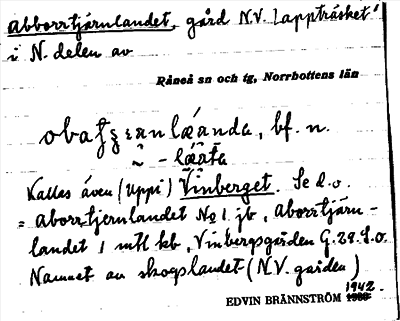 Abborrtjärnlandet, gård N.V. Lappträsket
i N. delen av
Råneå sn och tg, Norrbottens län
bf. n.
Kallas även (uppi) Vinberget. Se d.o.
= Aborrtjernlandet No 1 jb, Aborrtjärn-
landet 1 mtl kb, Vinbergsgården G.28. S.o.
Namnet av skogslandet (N.V. gården)
1942.
EDVIN BRÄNNSTRÖM